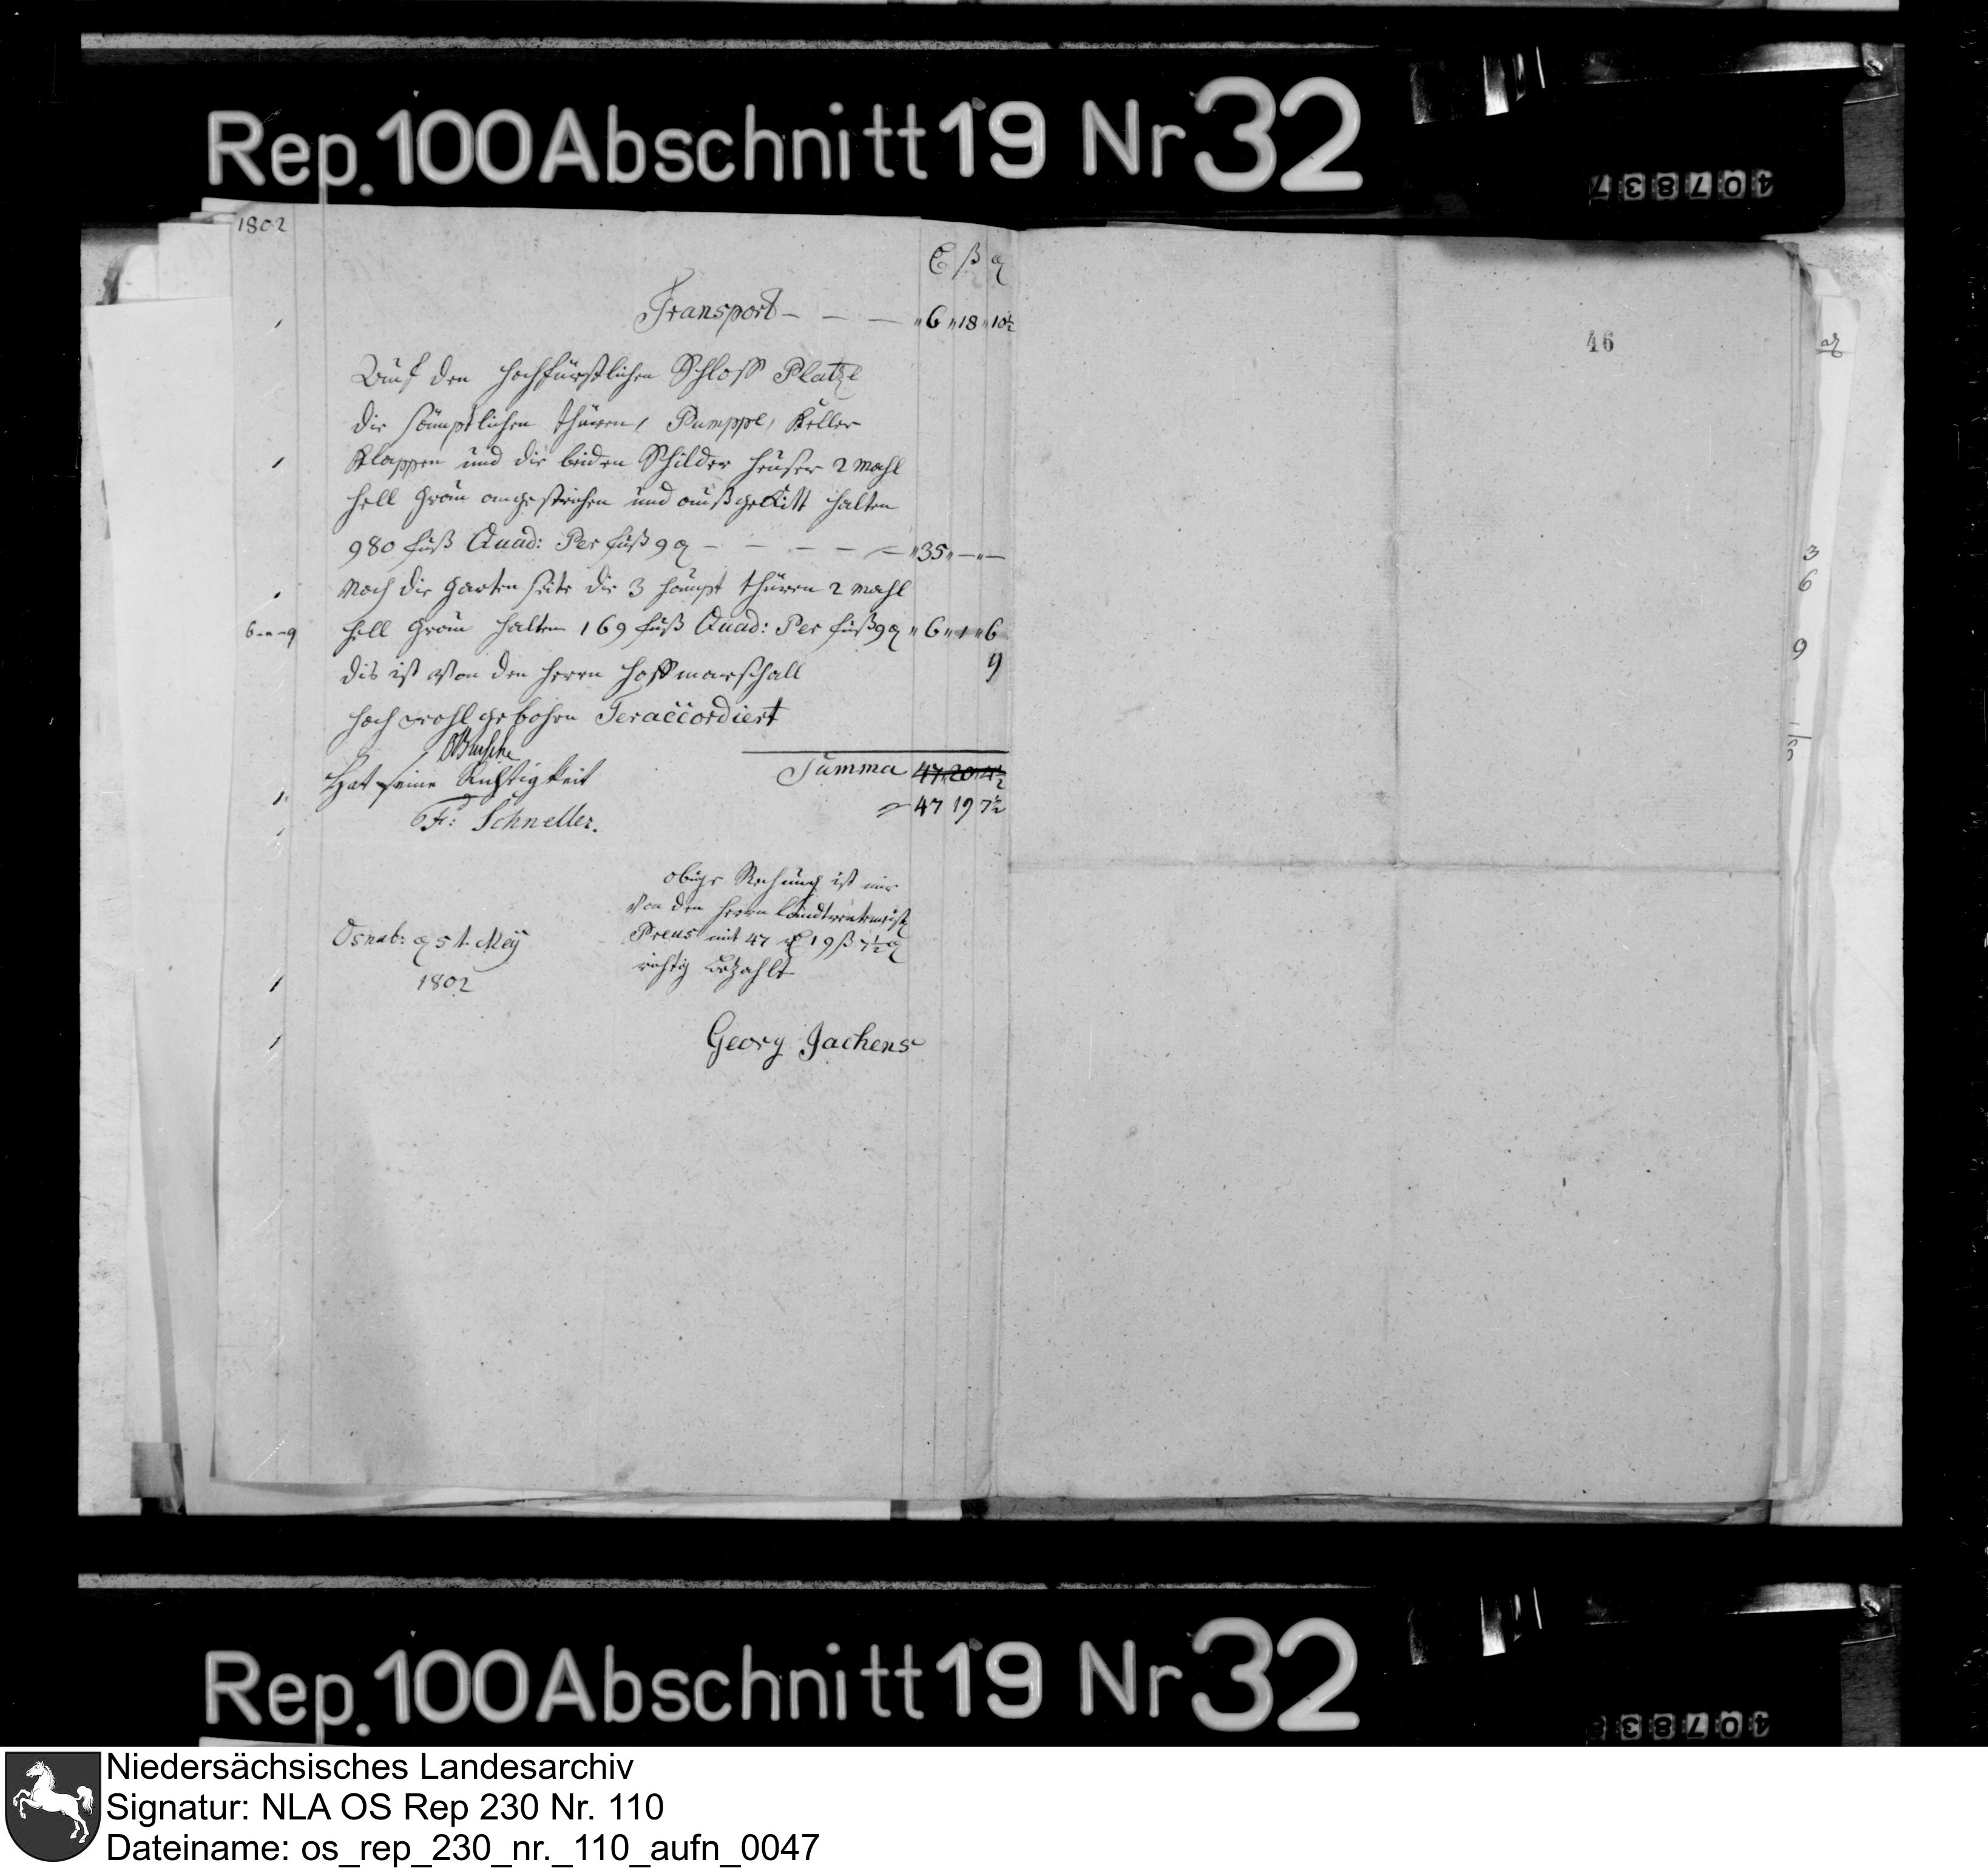 Rep. 100 Abschnitt 19 Nr 32
407837
1802
ß ₰
Transport — — — " 6 " 18 " 10½
Auf den Hochfürstlichen Schloss Platze
die sämptlichen thüren, Pumppe, Keller
Klappen und die beiden Schilder heuser 2 mahl
hell Grau angestrichen und außgekitt halten
980 fuß Quad: Per fuß 9 ₰ — — — — " 35 " — " —
Nach die garten seite die 3 haupt thüren 2 mahl
6 - " - 9
hell Grau halten 169 fuß Quad: Per fuß 9 ₰ " 6 " 1 " 6
9
dis ist von den Herrn Hoffmarschall
hoch wohl gebohrn Veraccordiert
Busche
Hat seine Richtigkeit
Summa 47 " 20 " 4½
47 19 7½
Fr: Schneller.
obige Rechnung ist mir
von den Herrn Landrentmeist
Preus mit 47 19 ß 7½ ₰
richtig Bezahlt
Osnab: 5 t. Meÿ
1802
Georg Jachens
46
₰
3
6
9
Rep. 100 Abschnitt 19 Nr 32
Niedersächsisches Landesarchiv
Signatur: NLA OS Rep 230 Nr. 110
Dateiname: os_rep_230_nr._110_aufn_0047